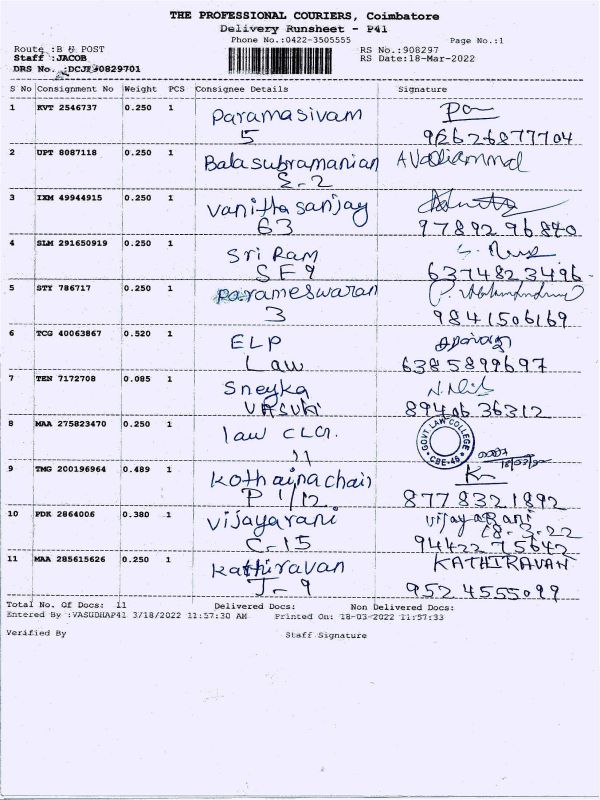 THE PROFESSIONAL COURIERS, Coimbatore
Delivery Runsheet - P41
Phone No.:0422-3505555 Page No.:1
Route :B & POST RS No.:908297
Staff :JACOB RS Date:18-Mar-2022
DRS No.
S No Consignment No Weight PCS Consignee Details Signature
1 KVT 2546737 0.250 1 Paramasivam
5 9662687 7704
2 UPT 8087118 0.250 1 Balasubramanian AValliammal
S-2
3 IXM 49944915 0.250 1 Vanitha sanjay
63 97892 96840
4 SLM 291650919 0.250 1 Sri Ram
SF9 6374823496
5 STY 786717 0.250 1 Parameswaran
3 9841506169
6 TCG 40063867 0.520 1 ELP
Law 6385899697
7 TEN 7172708 0.085 1 Sneyka
VASUKI 89406 36312
8 MAA 275823470 0.250 1 law CLG. GOVT. LAW COLLEGE CBE-46
11
9 TMG 200196964 0.489 1 Kothainachair
P 1/12 8778321892
10 PDK 2864006 0.380 1 Vijayarani Vijayarani
C-15 18-3-22
94422 75642
11 MAA 285615626 0.250 1 Kathiravan KATHIRAVAN
J-9 9524555099
Total No. Of Docs: 11 Delivered Docs: Non Delivered Docs:
Entered By :VASUDHAP41 3/18/2022 11:57:30 AM Printed On: 18-03-2022 11:57:33
Verified By Staff Signature